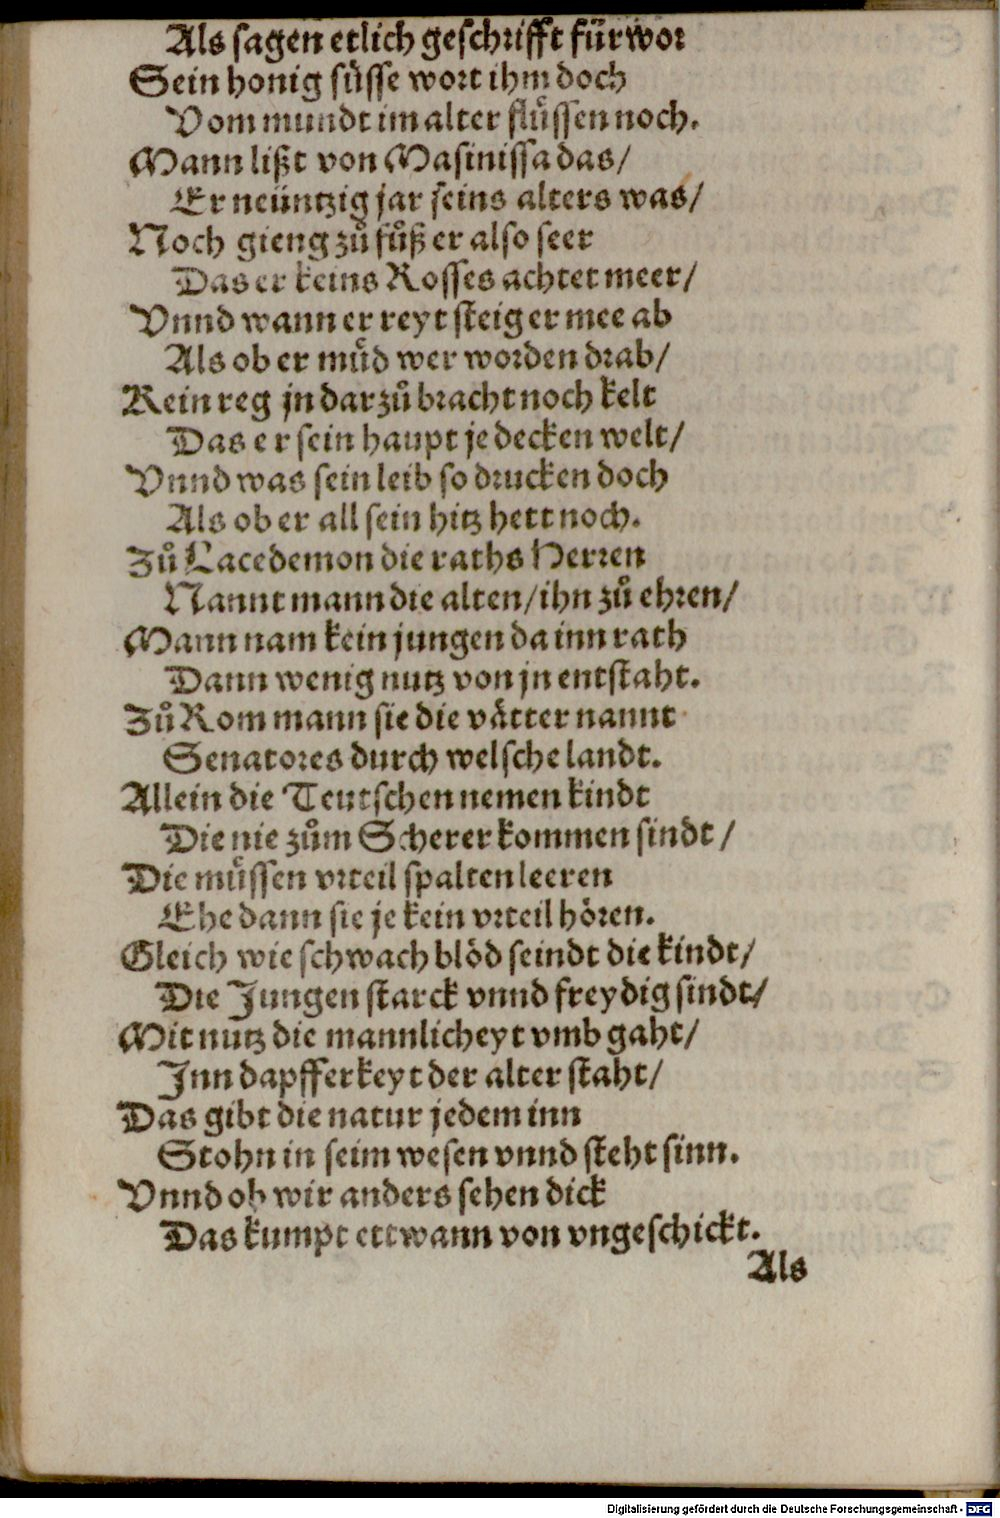 Als sagen etlich geschrifft fürwor
Sein honig süsse wort ihm doch
Vom mundt im alter flůssen noch.
Mann lißt von Masinissa das/
Er neüntzig jar seins alters was/
Noch gieng zů fůß er also seer
Das er keins Rosses achtet meer/
Vnnd wann er reyt steig er mee ab
Als ob er můd wer worden drab/
Kein reg jn darzů bracht noch kelt
Das er sein haupt je decken welt/
Vnnd was sein leib so drucken doch
Als ob er all sein hitz hett noch.
Zů Lacedemon die raths Herren
Nannt mann die alten/ihn zů ehren/
Mann nam kein jungen da inn rath
Dann wenig nutz von jn entstaht.
Zů Rom mann sie die vätter nannt
Senatores durch welsche landt.
Allein die Teutschen nemen kindt
Die nie zům Scherer kommen sindt/
Die můssen vrteil spalten leeren
Ehe dann sie je kein vrteil hören.
Gleich wie schwach blöd seindt die kindt/
Die Jungen starck vnnd freydig sindt/
Mit nutz die mannlicheyt vmb gaht/
Inn dapfferkeyt der alter staht/
Das gibt die natur jedem inn
Stohn in seim wesen vnnd steht sinn.
Vnnd ob wir anders sehen dick
Das kumpt ettwann von vngeschickt.
Als
Digitalisierung gefördert durch die Deutsche Forschungsgemeinschaft - DFG